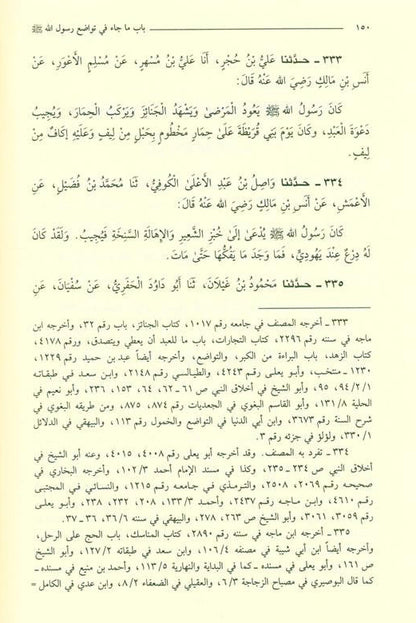 ١٥٠ باب ما جاء في تواضع رسول الله ﷺ
٣٣٣ ـ حدَّثنا عَلِيُّ بْنُ حُجْرٍ، أَنَا عَلِيُّ بْنُ مُسْهِرٍ، عَنْ مُسْلِمٍ الأَعْوَرِ، عَنْ
أَنَسِ بْنِ مَالِكٍ رَضِيَ اللهُ عَنْهُ قَالَ:
كَانَ رَسُولُ اللهِ ﷺ يَعُودُ الْمَرْضَىٰ وَيَشْهَدُ الْجَنَائِزَ وَيَرْكَبُ الْحِمَارَ، وَيُجِيبُ
دَعْوَةَ الْعَبْدِ، وكَانَ يَوْمَ بَنِي قُرَيْظَةَ عَلَىٰ حِمَارٍ مَخْطُومٍ بِحَبْلٍ مِنْ لِيفٍ وَعَلَيْهِ إِكَافٌ مِنْ
لِيفٍ.
٣٣٤ ـ حدَّثنا وَاصِلُ بْنُ عَبْدِ الأَعْلَىٰ الْكُوفِيُّ، ثَنَا مُحَمَّدُ بْنُ فُضَيْلٍ، عَنِ
الأَعْمَشِ، عَنْ أَنَسِ بْنِ مَالِكٍ رَضِيَ اللهُ عَنْهُ قَالَ:
كَانَ رَسُولُ اللهِ ﷺ يُدْعَىٰ إِلَىٰ خُبْزِ الشَّعِيرِ وَالإِهَالَةِ السَّنِخَةِ فَيُجِيبُ. وَلَقَدْ كَانَ
لَهُ دِرْعٌ عِنْدَ يَهُودِيٍّ، فَمَا وَجَدَ مَا يَفُكُّهَا حَتَّىٰ مَاتَ.
٣٣٥ ـ حدَّثنا مَحْمُودُ بْنُ غَيْلَانَ، ثَنَا أَبُو دَاوُدَ الْحَفَرِيُّ، عَنْ سُفْيَانَ، عَنِ
٣٣٣ ـ أخرجه المصنف في جامعه رقم ١٠١٧، كتاب الجنائز، باب رقم ٣٢، وأخرجه ابن
ماجه في سننه رقم ٢٢٩٦، كتاب التجارات، باب ما للعبد أن يعطي ويتصدق، ورقم ٤١٧٨،
كتاب الزهد، باب البراءة من الكبر، والتواضع، وأخرجه أيضاً عبد بن حميد رقم ١٢٢٩،
١٢٣٠ ـ منتخب، وأبو يعلى رقم ٤٢٤٣، والطيالسي رقم ٢١٤٨، وابن سعد في طبقاته
٩٤/٢/١، ٩٥، وأبو الشيخ في أخلاق النبي ص ٦١ ـ ٦٢، ٦٤، ١٥٣، ٢٣٦، وأبو نعيم في
الحلية ١٣١/٨، وأبو القاسم البغوي في الجعديات رقم ٨٧٤، ٨٧٥، ومن طريقه البغوي في
شرح السنة رقم ٣٦٧٣، وابن أبي الدنيا في التواضع والخمول رقم ١١٣، والبيهقي في الدلائل
٣٣٠/١، ولؤلؤ في جزئه رقم ٣.
٣٣٤ ـ تفرد به المصنف. وقد أخرجه أبو يعلى رقم ٤٠٠٨، ٤٠١٥، وعنه أبو الشيخ في
أخلاق النبي ص ٢٣٤ ـ ٢٣٥، وكذا في مسند الإمام أحمد ١٠٢/٣، وأخرجه البخاري في
صحيحه رقم ٢٠٦٩، ٢٥٠٨، والترمذي في جامعه رقم ١٢١٥، والنسائي في المجتبى
رقم ٤٦١٠، وابن ماجه رقم ٢٤٣٧، وأحمد ١٣٣/٣، ٢٠٨، ٢٣٢، ٢٣٨، وأبو يعلى
رقم ٣٠٥٩، ٣٠٦١، وأبو الشيخ ص ٢٦٣، ٢٧٨، والبيهقي في سننه ٣٦/٦، ٣٦ ـ ٣٧.
٣٣٥ ـ أخرجه ابن ماجه في سننه رقم ٢٨٩٠، كتاب المناسك، باب الحج على الرحل،
وأخرجه أيضاً ابن أبي شيبة في مصنفه ١٠٦/٤، وابن سعد في طبقاته ١٢٧/٢، وأبو الشيخ
ص ١٦١، وأبو يعلى في مسنده ـ كما في البداية والنهاية ١١٣/٥، وأحمد بن منيع في مسنده ـ
كما قال البوصيري في مصباح الزجاجة ٦/٣، والعقيلي في الضعفاء ٨/٢، وابن عدي في الكامل =